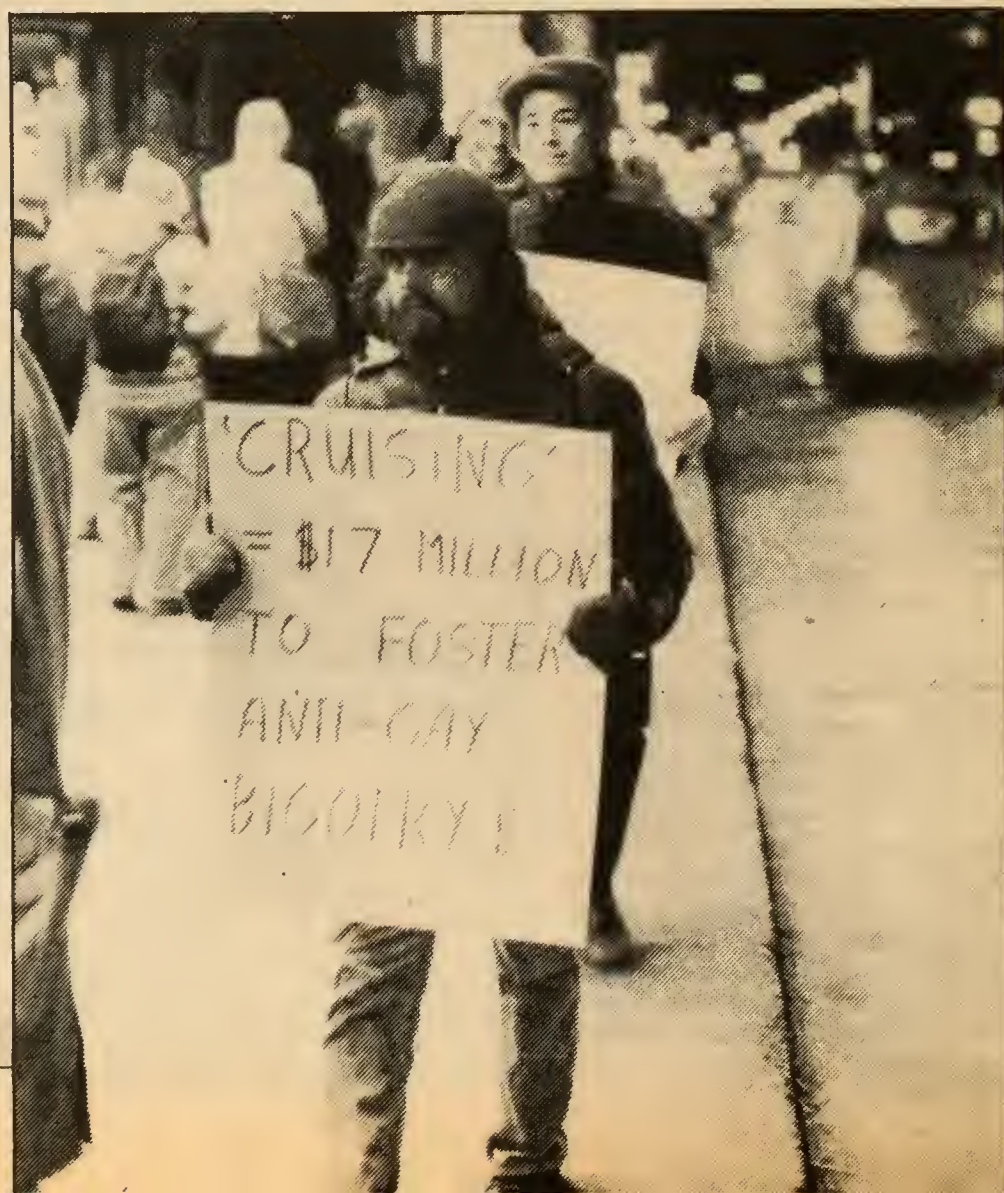 'CRUISING'
= $17 MILLION
TO FOSTER
ANTI-GAY
BIGOTRY!